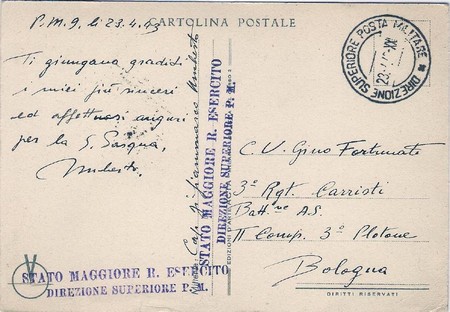 P.M.9, li 23.4.43
CARTOLINA POSTALE
Ti giungano graditi
i miei più sinceri
ed affettuosi auguri
per la S. Pasqua,
Umberto.
Giammarco Umberto
STATO MAGGIORE R. ESERCITO
DIREZIONE SUPERIORE P. M.
STATO MAGGIORE R. ESERCITO
DIREZIONE SUPERIORE P. M.
DIREZIONE SUPERIORE POSTA MILITARE
C. V. Gino Fortunato
3° Rgt. Carristi
Batt.ne A.S.
II Comp. 3° Plotone
Bologna
DIRITTI RISERVATI